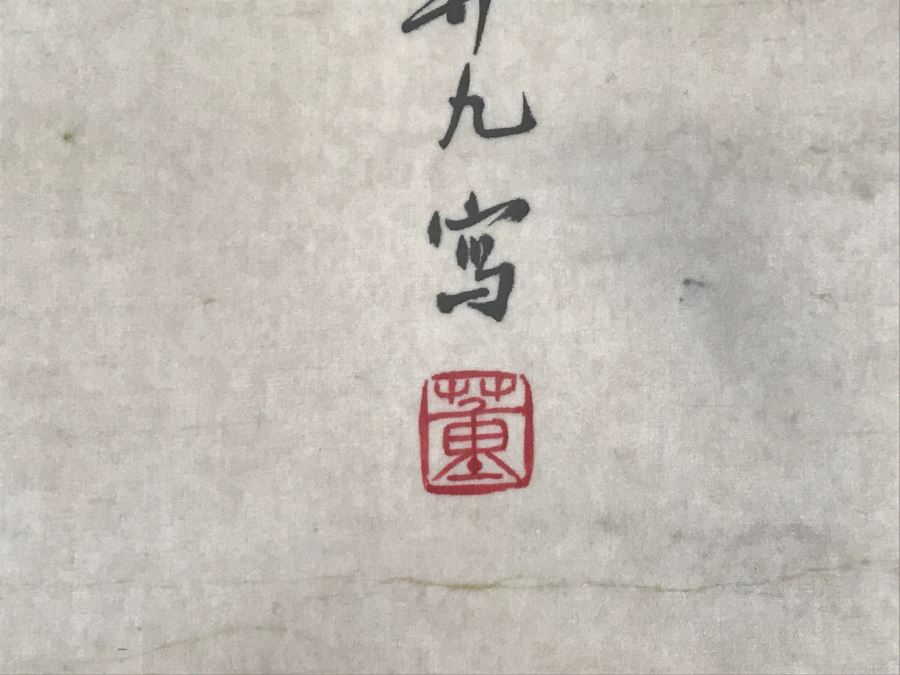 九寫
董